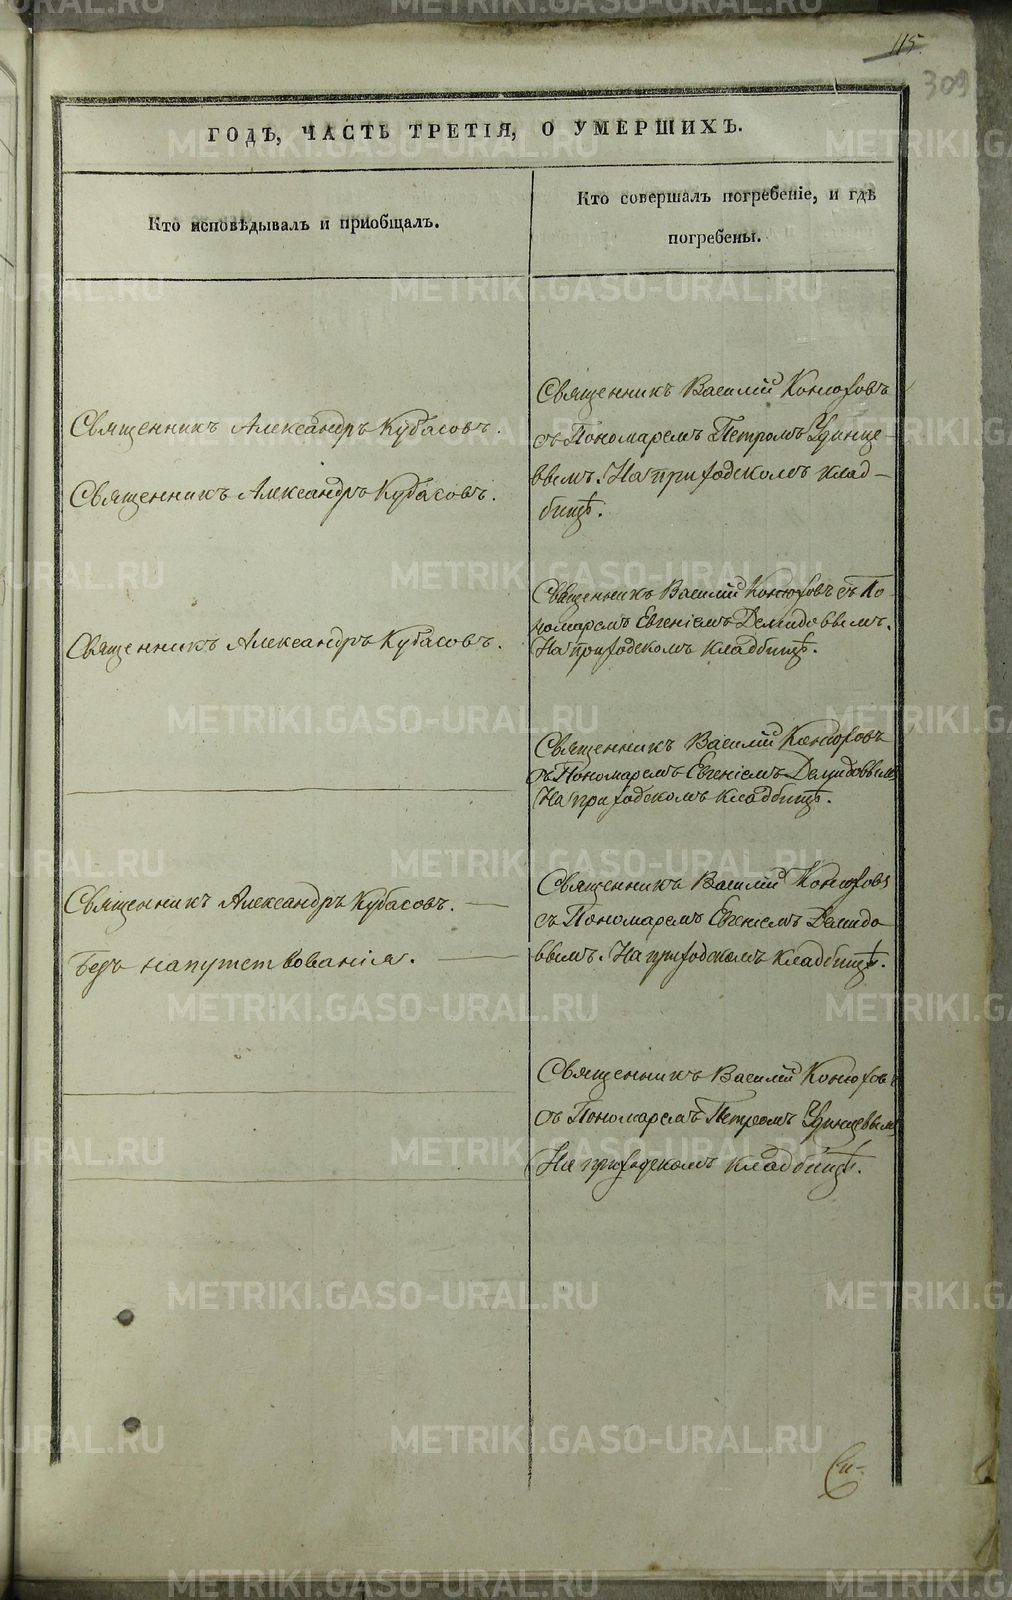 115.
309
ГОДЪ, ЧАСТЬ ТРЕТІЯ, О УМЕРШИХЪ.
Кто исповѣдывалъ и пріобщалъ.
Кто совершалъ погребеніе, и гдѣ
погребены.
Священникъ Александръ Кубасовъ.
Священникъ Александръ Кубасовъ.
Священникъ Василій Конюховъ
съ Пономаремъ Петромъ Удинце-
вымъ. На приходскомъ клад-
бищѣ.
Священникъ Александръ Кубасовъ.
Священникъ Василій Конюховъ съ По-
номаремъ Евгеніемъ Демидовымъ.
На приходскомъ кладбищѣ.
Священникъ Василій Конюховъ
съ Пономаремъ Евгеніемъ Демидовымъ
На приходскомъ кладбищѣ.
Священникъ Александръ Кубасовъ.
Безъ напутствованія.
Священникъ Василій Конюховъ
съ Пономаремъ Евгеніемъ Демидо
вымъ. На приходскомъ кладбищѣ.
Священникъ Василій Конюховъ
съ Пономаремъ Петромъ Удинцевымъ
На приходскомъ кладбищѣ.
METRIKI.GASO-URAL.RU